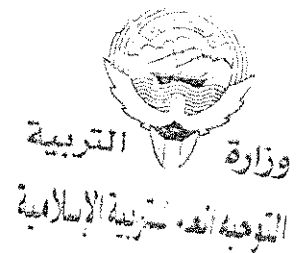 وزارة التربية
التوجيه الفني للتربية الإسلامية